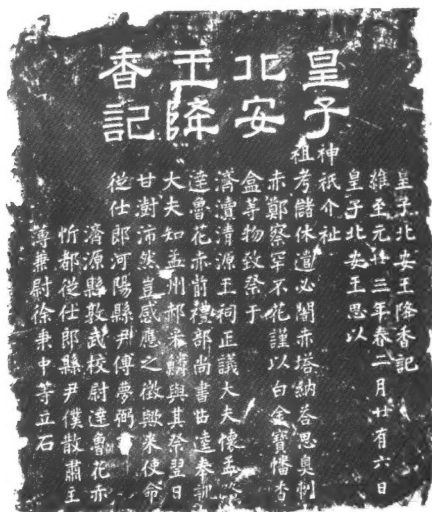 皇子
北安
王降
香記
皇子北安王降香記
維至元廿三年春二月廿有六日
皇子北安王思以
神祇介祉
祖考儲休遣必闍赤塔納荅思奥剌
赤鄭察罕不花謹以白金寶幡香
盒等物致祭于
濟瀆清源王祠正議大夫懷孟路
達魯花赤前禮部尚書苫達奉訓
大夫知孟州郝采麟與其祭翌日
甘澍沛然豈感應之徵歟来使命
従仕郎河陽縣尹傅夢弼書
濟源縣敦武校尉達魯花赤
忻都従仕郎縣尹僕散肅主
薄兼尉徐秉中等立石